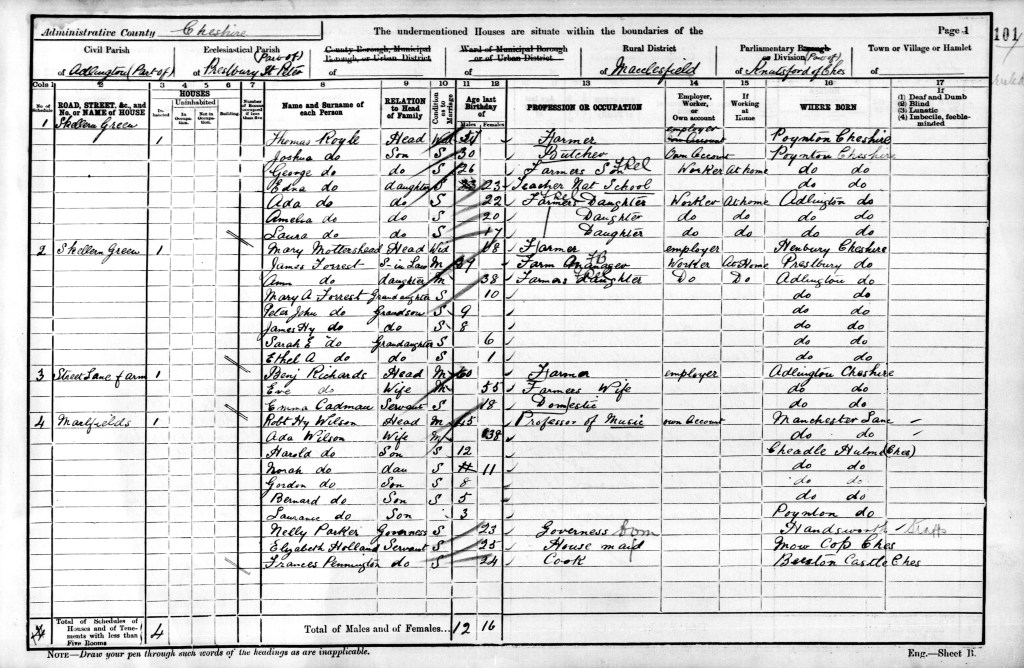 Administrative County Cheshire The undermentioned Houses are situate within the boundaries of the Page 1
101
Civil Parish of Adlington (Part of)
Ecclesiastical Parish (Part of) of Prestbury St Peter
County Borough, Municipal Borough, or Urban District of
Ward of Municipal Borough or of Urban District of
Rural District of Macclesfield
Parliamentary Borough or Division (Part of) of Knutsford of Ches
Town or Village or Hamlet of
Cols 1 2 3 4 5 6 7 8 9 10 11 12 13 14 15 16 17
No. of Schedule ROAD, STREET, &c., and No. or NAME of HOUSE HOUSES Inhabited Uninhabited In Occupation Not in Occupation Building Number of Rooms occupied if less than five Name and Surname of each Person RELATION to Head of Family Condition as to Marriage Age last Birthday of Males Females PROFESSION OR OCCUPATION Employer, Worker, or Own account If Working at Home WHERE BORN If (1) Deaf and Dumb (2) Blind (3) Lunatic (4) Imbecile, feeble-minded
1 Skellern Green 1 Thomas Royle Head Wid Farmer employer Poynton Cheshire
Joshua do Son S 30 Butcher Own Account Poynton Cheshire
George do do S 26 Farmers Son Rel Worker At home do do
Edna do daughter S 23 Teacher Nat School do do
Ada do do S 22 Farmers Daughter Worker At home Adlington do
Amelia do do S 20 Daughter do do do do
Laura do do S 17 Daughter do do do do
2 Skellern Green 1 Mary Mottershead Head Wid Farmer employer Henbury Cheshire
James Forrest S-in Law M 39 Farm Manager Worker At Home Prestbury do
Ann do daughter M 38 Farmers Daughter Do Do Adlington do
Mary A Forrest Grandaughter S 10 do do
Peter John do Grandson S 9 do do
James Hy do do S 8 do do
Sarah E do Grandaughter S 6 do do
Ethel A do do S 1 do do
3 Street Lane Farm 1 Benj Richards Head M 60 Farmer employer Adlington Cheshire
Eve do Wife M 55 Farmers Wife do do
Emma Cadman Servant S 18 Domestic do do
4 Marlfields 1 Robt Hy Wilson Head M 45 Professor of Music own account Manchester Lanc
Ada Wilson Wife M 38 do do
Harold do Son S 12 Cheadle Hulme (Ches)
Norah do dau S 11 do do
Gordon do Son S 8 do do
Bernard do Son S 5 do do
Laurance do Son 3 Poynton do
Nelly Parker Governess S 23 Governess Dom Handsworth
Elizabeth Holland Servant S 25 House maid Mow Cop Ches
Frances Pennington do S 24 Cook Beeston Castle Ches
4 Total of Schedules of Houses and of Tenements with less than Five Rooms 4 Total of Males and of Females... 12 16
NOTE—Draw your pen through such words of the headings as are inapplicable. Eng.—Sheet B.